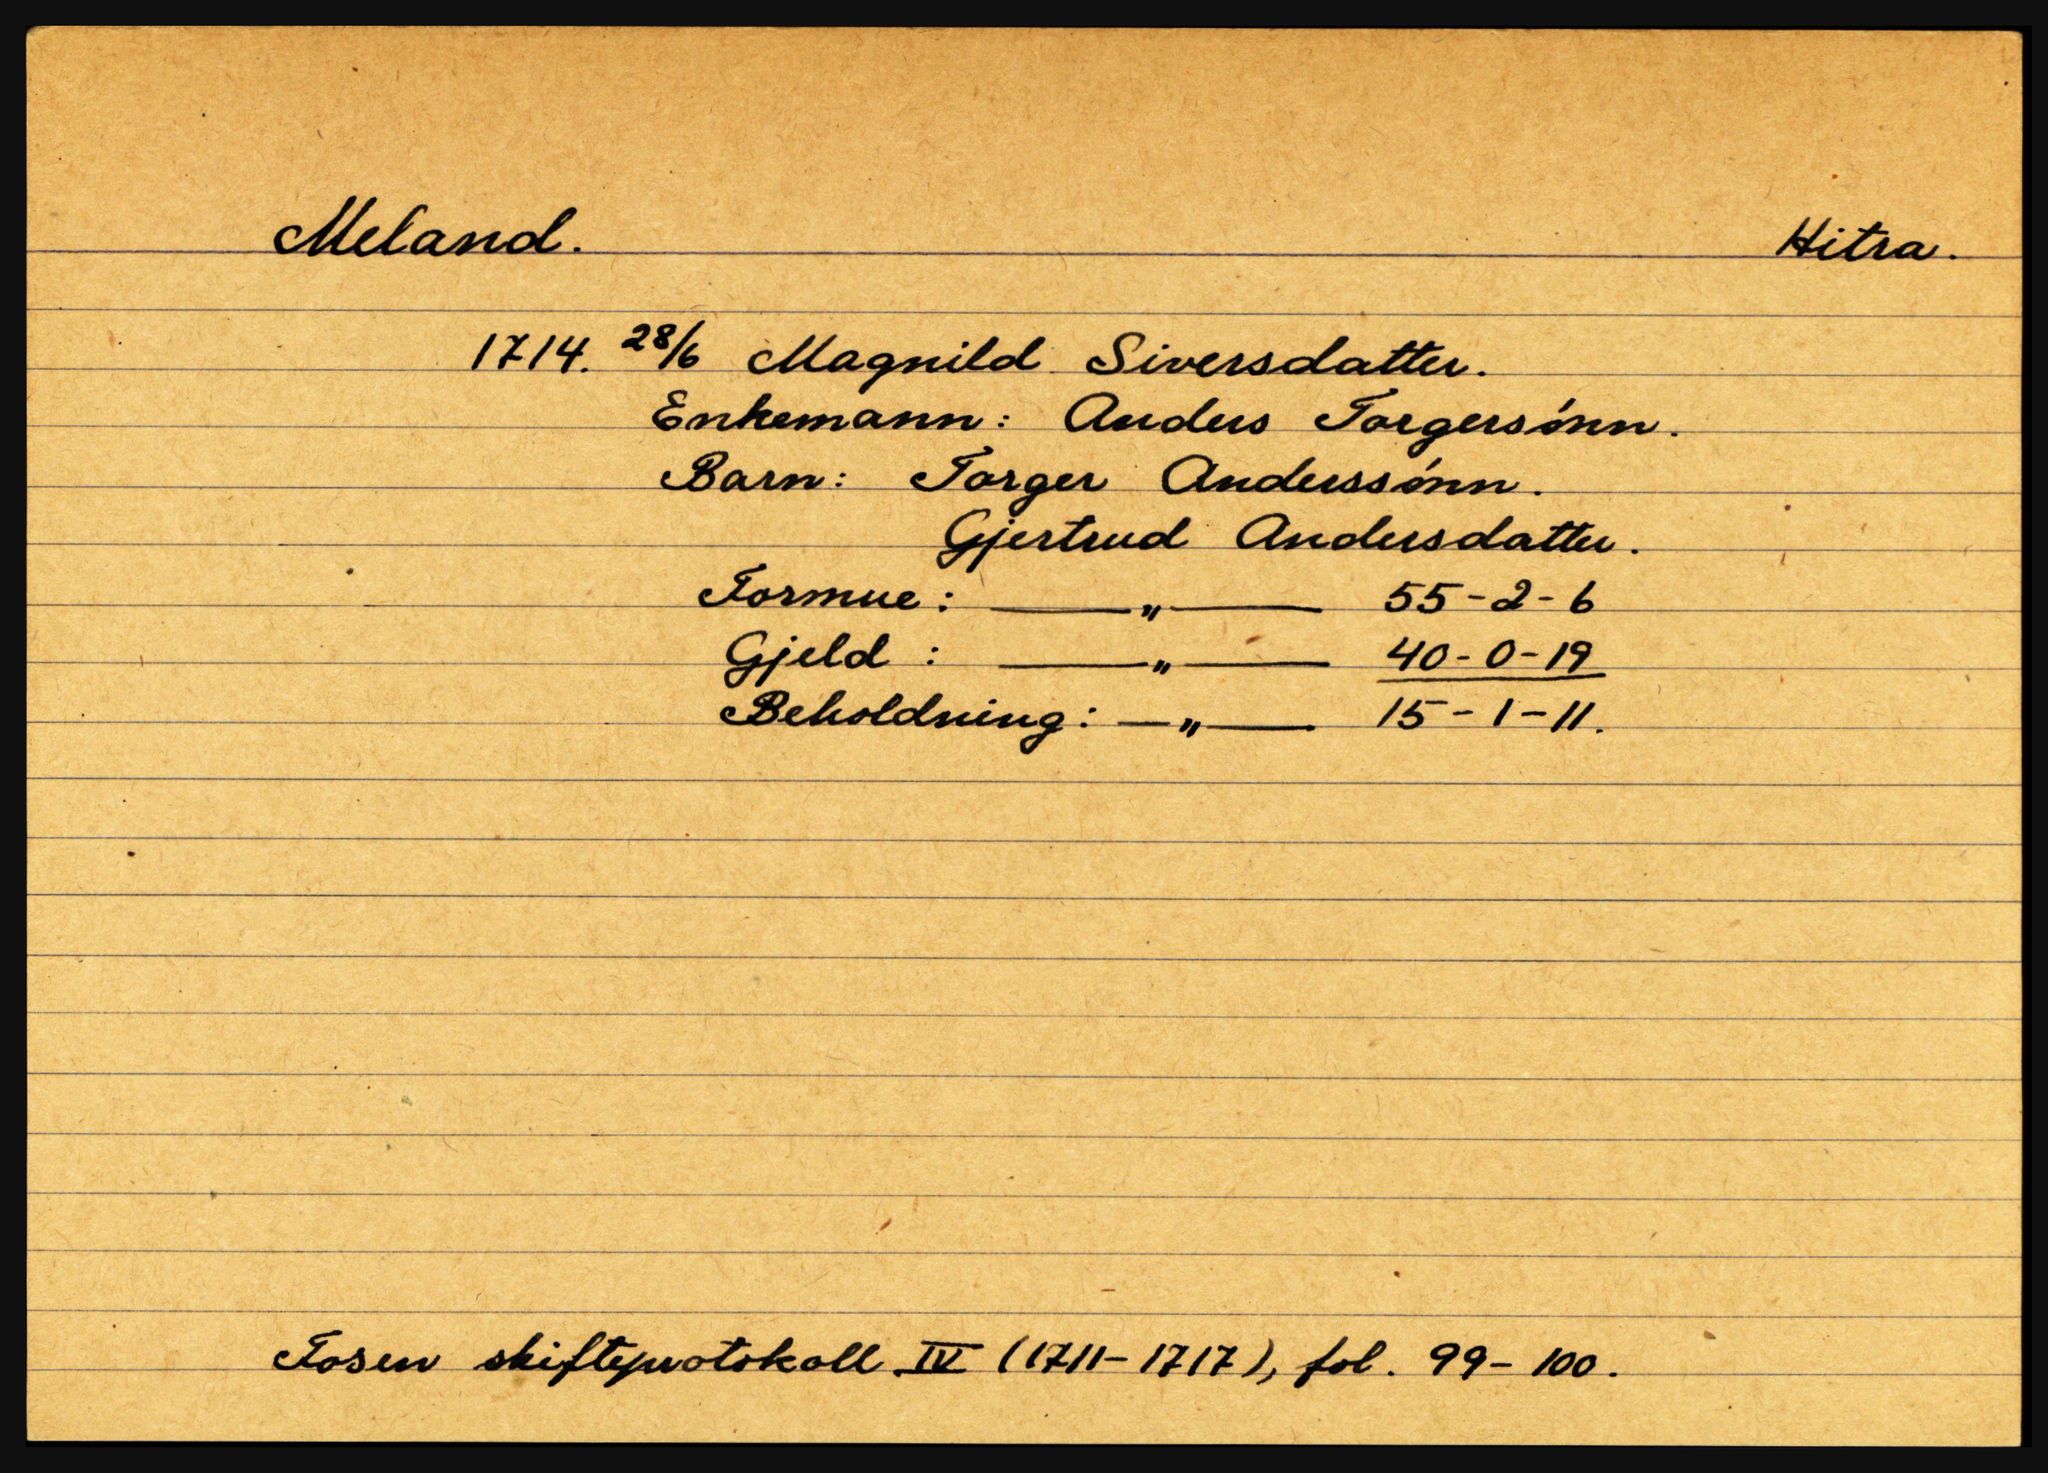 Meland. Hitra.
1714. 28/6 Magnild Siversdatter.
Enkemann: Anders Torgersønn.
Barn: Torger Anderssønn.
Gjertrud Andersdatter.
Formue: —„— 55-2-6
Gjeld: —„— 40-0-19
Beholdning: —„— 15-1-11.
Fosen skifteprotokoll IV (1711-1717), fol. 99-100.